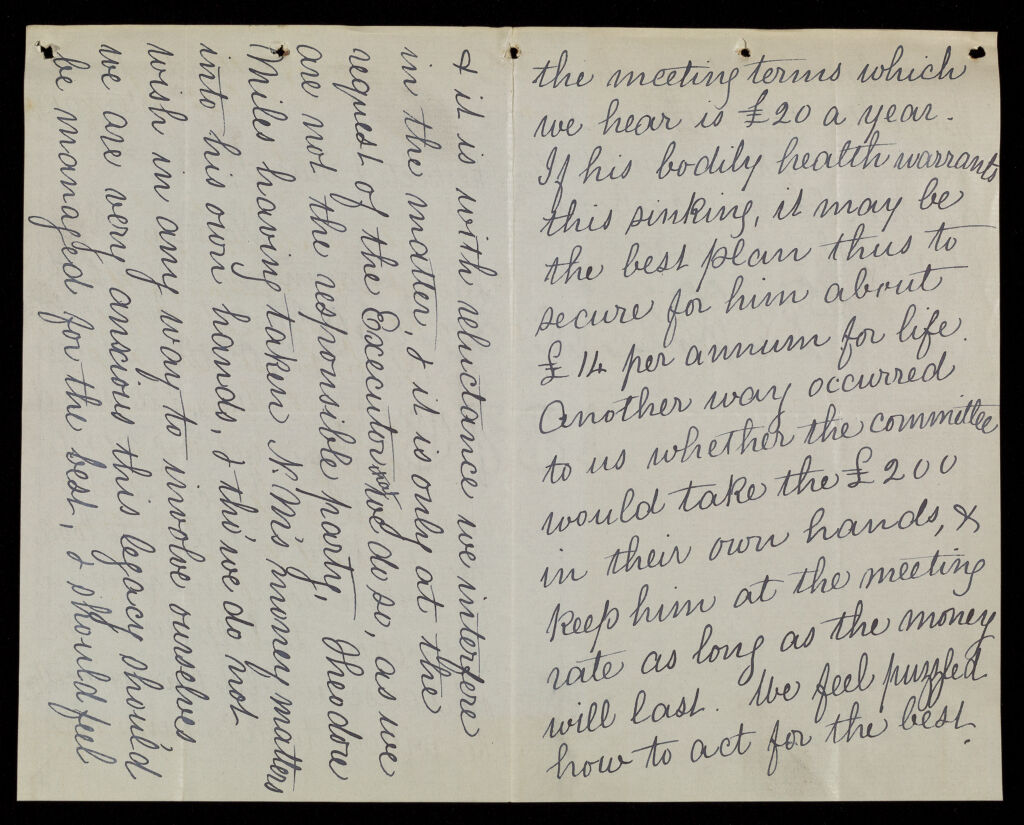 the meeting terms which
we hear is £20 a year.
If his bodily health warrants
this sinking, it may be
the best plan thus to
secure for him about
£14 per annum for life.
Another way occurred
to us whether the committee
would take the £200
in their own hands, &
keep him at the meeting
rate as long as the money
will last. We feel puzzled
how to act for the best.
& it is with reluctance we interfere
in the matter, & it is only at the
request of the Executors we do so, as we
are not the responsible party, Theodore
Miles having taken N. M's money matters
into his own hands, & tho' we do not
wish in any way to involve ourselves
we are very anxious this legacy should
be managed for the best, & should feel